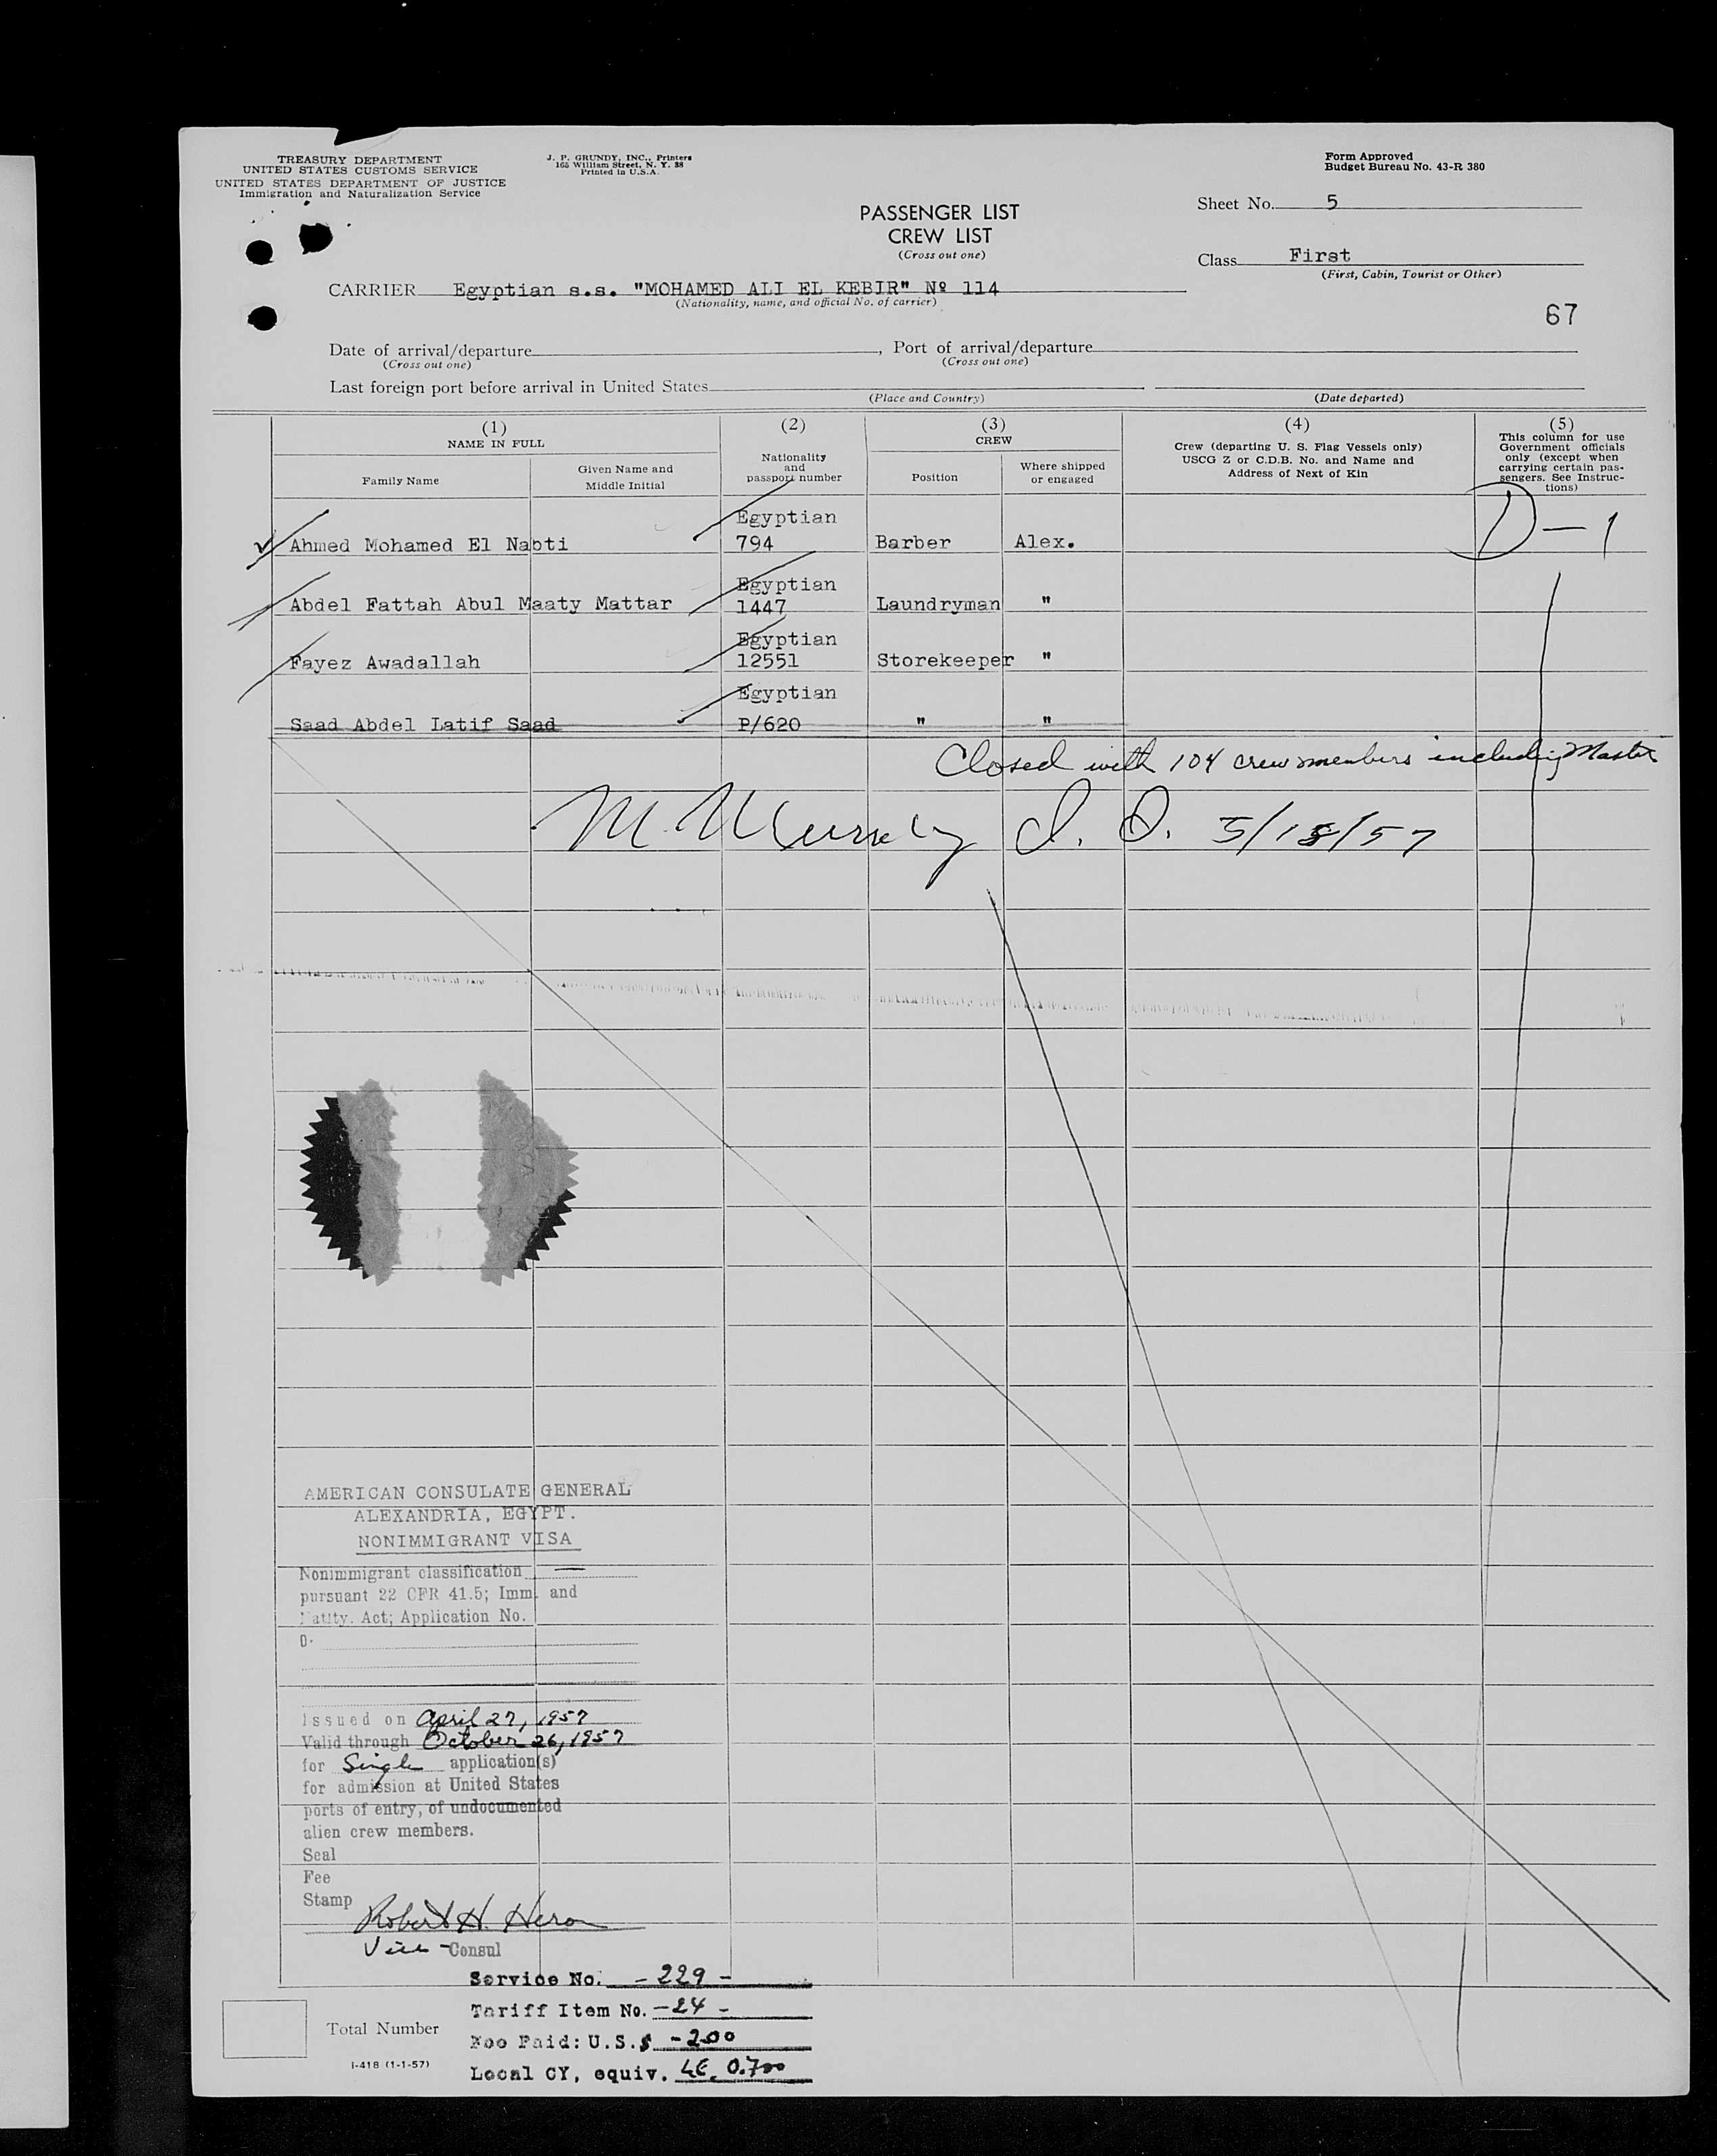 TREASURY DEPARTMENT
UNITED STATES CUSTOMS SERVICE
UNITED STATES DEPARTMENT OF JUSTICE
Immigration and Naturalization Service
J. P. GRUNDY, INC., Printers
165 William Street, N. Y. 38
Printed in U.S.A.
Form Approved
Budget Bureau No. 43-R 380
PASSENGER LIST
CREW LIST
(Cross out one)
Sheet No. 5
Class First
(First, Cabin, Tourist or Other)
CARRIER Egyptian s.s. "MOHAMED ALI EL KEBIR" Nº 114
(Nationality, name, and official No. of carrier)
67
Date of arrival/departure , Port of arrival/departure
(Cross out one) (Cross out one)
Last foreign port before arrival in United States
(Place and Country) (Date departed)
(1)
NAME IN FULL
Family Name
Given Name and
Middle Initial
(2)
Nationality
and
passport number
(3)
CREW
Position
Where shipped
or engaged
(4)
Crew (departing U. S. Flag Vessels only)
USCG Z or C.D.B. No. and Name and
Address of Next of Kin
(5)
This column for use
Government officials
only (except when
carrying certain pas-
sengers. See Instruc-
tions)
Egyptian
Ahmed Mohamed El Nabti 794 Barber Alex. D-1
Egyptian
Abdel Fattah Abul Maaty Mattar 1447 Laundryman "
Egyptian
Fayez Awadallah 12551 Storekeeper "
Egyptian
Saad Abdel Latif Saad P/620 " "
Closed with 104 crew members including Master
M. I. O. 5/18/57
AMERICAN CONSULATE GENERAL
ALEXANDRIA, EGYPT.
NONIMMIGRANT VISA
Nonimmigrant classification —
pursuant 22 CFR 41.5; Imm. and
Natlty. Act; Application No.
0-
Issued on April 27, 1957
Valid through October 26, 1957
for Single application(s)
for admission at United States
ports of entry, of undocumented
alien crew members.
Seal
Fee
Stamp
Robert H. Heron
Vice-Consul
Service No. -229-
Tariff Item No. -24-
Fee Paid: U.S.$ -2.00
Local CY, equiv. LE. 0.700
Total Number
I-418 (1-1-57)